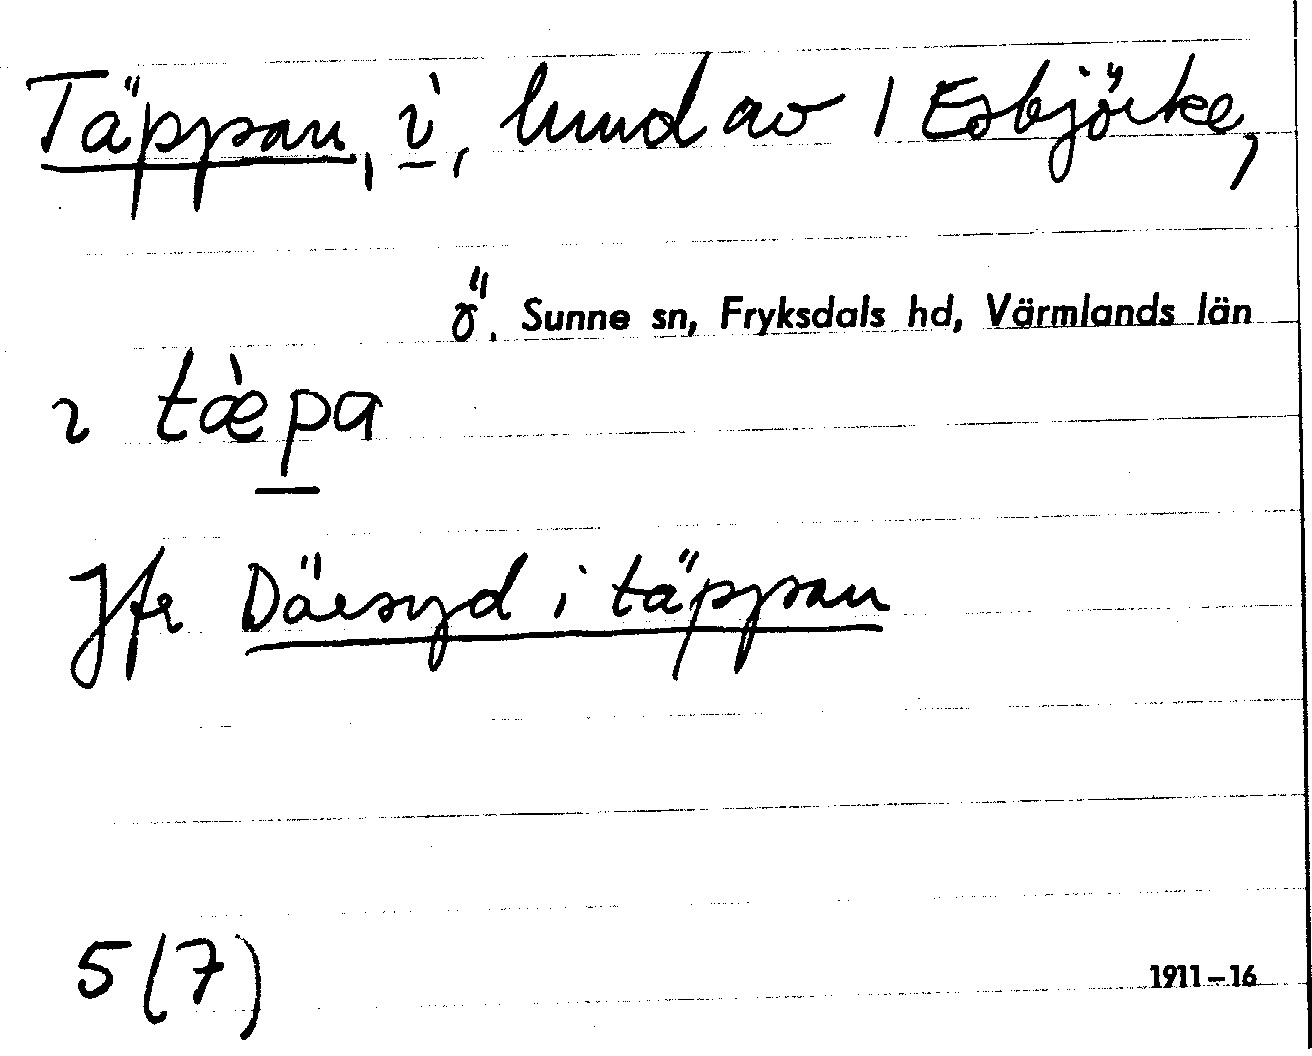 Täppan, i, hmd av 1 Esbjörke,
ö. Sunne sn, Fryksdals hd, Värmlands län
ɩ tæ̀pa
Jfr Där syd i täppan
5(7)
1911–16